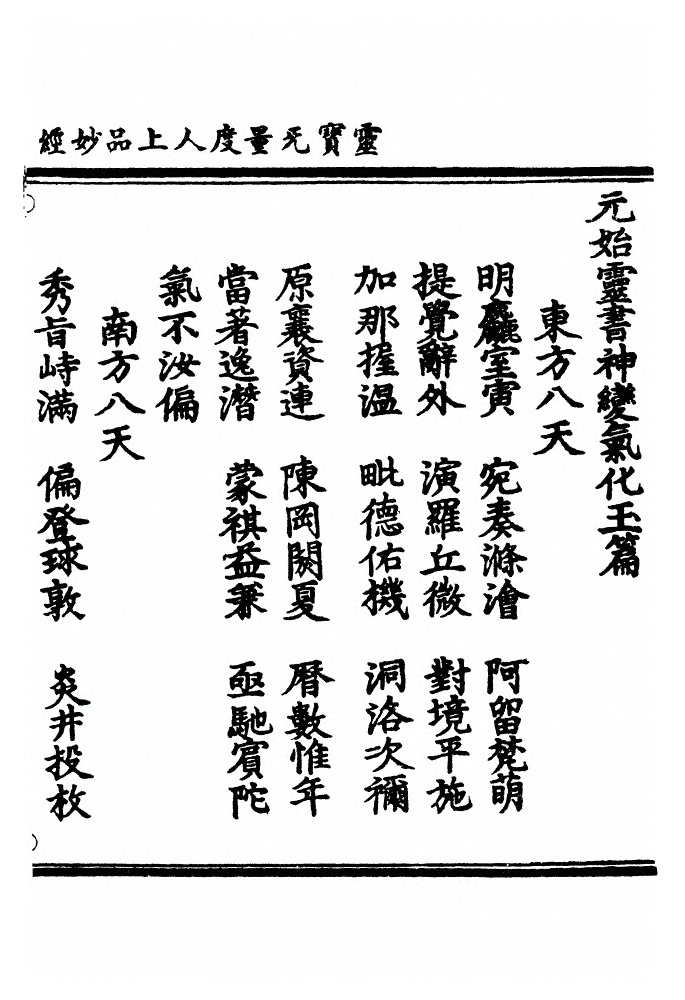 靈寶旡量度人上品妙經
元始靈書神變氣化玉篇
東方八天
明廳室寅 宛奏滌澮 阿留梵萌
提覺辭外 演羅丘微 對境平施
加那握溫 毗德佑機 洞洛次禰
原襄資連 陳岡閼夏 曆數惟年
當著逸潛 蒙祺益兼 亟馳賓陀
氣不汝偏
南方八天
秀旨峙滿 偏登球敦 炎井投枚